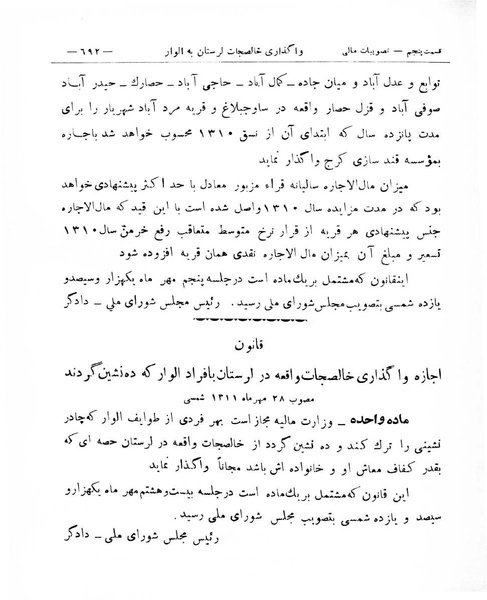 قسمت پنجم — تصویبات مالی واگذاری خالصجات لرستان به الوار — ٦٩٢ —
توابع و عدل آباد و میان جاده ـ کمال آباد ـ حاجی آباد ـ حصارك ـ حیدر آبـاد
صوفی آباد و قزل حصار واقعه در ساوجبلاغ و قریه مرد آباد شهریار را برای
مدت پانزده سال که ابتدای آن از نسق ۱۳۱۰ محسوب خواهد شد باجاره
بمؤسسه قند سازی کرج واگذار نماید
میزان مال الاجاره سالیانه قراء مزبور معادل با حد اکثر پیشنهادی خواهد
بود که در مدت مزایده سال ۱۳۱۰ واصل شده است با این قید که مال الاجاره
جنس پیشنهادی هر قریه از قرار نرخ متوسط متعاقب رفع خرمن سال ۱۳۱۰
تسعیر و مبلغ آن بمیزان مال الاجاره نقدی همان قریه افزوده شود
اینقانون که مشتمل بر یك ماده است در جلسه پنجم مهر ماه یکهزار وسیصدو
یازده شمسی بتصویب مجلس شورای ملی رسید . رئیس مجلس شورای ملی ـ دادگر
قانون
اجازه واگذاری خالصجات واقعه در لرستان بافراد الوار که ده نشین گردند
مصوب ۲۸ مهر ماه ۱۳۱۱ شمسی
ماده واحده ـ وزارت مالیه مجاز است بهر فردی از طوایف الوار که چادر
نشینی را ترك کند و ده نشین گردد از خالصجات واقعه در لرستان حصه ای که
بقدر کفاف معاش او و خانواده اش باشد مجاناً واگذار نماید
این قانون که مشتمل بر یك ماده است در جلسه بیست و هشتم مهر ماه یکهزارو
سیصد و یازده شمسی بتصویب مجلس شورای ملی رسید .
رئیس مجلس شورای ملی ـ دادگر